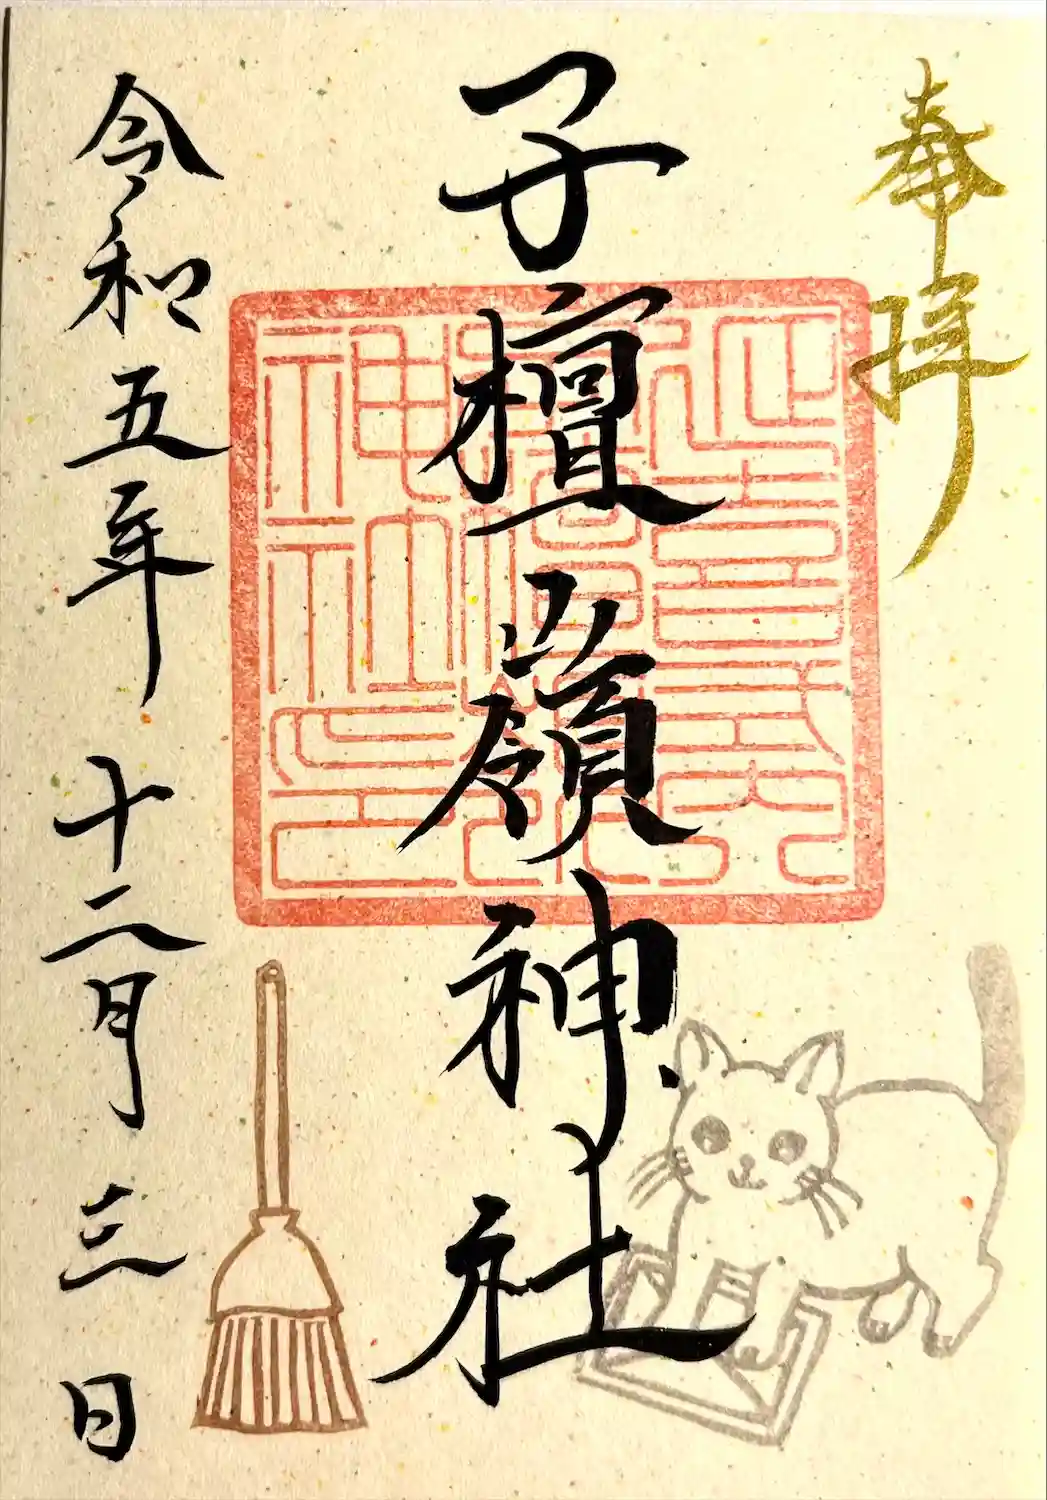 奉拝
子檀嶺神社
令和五年十二月三日